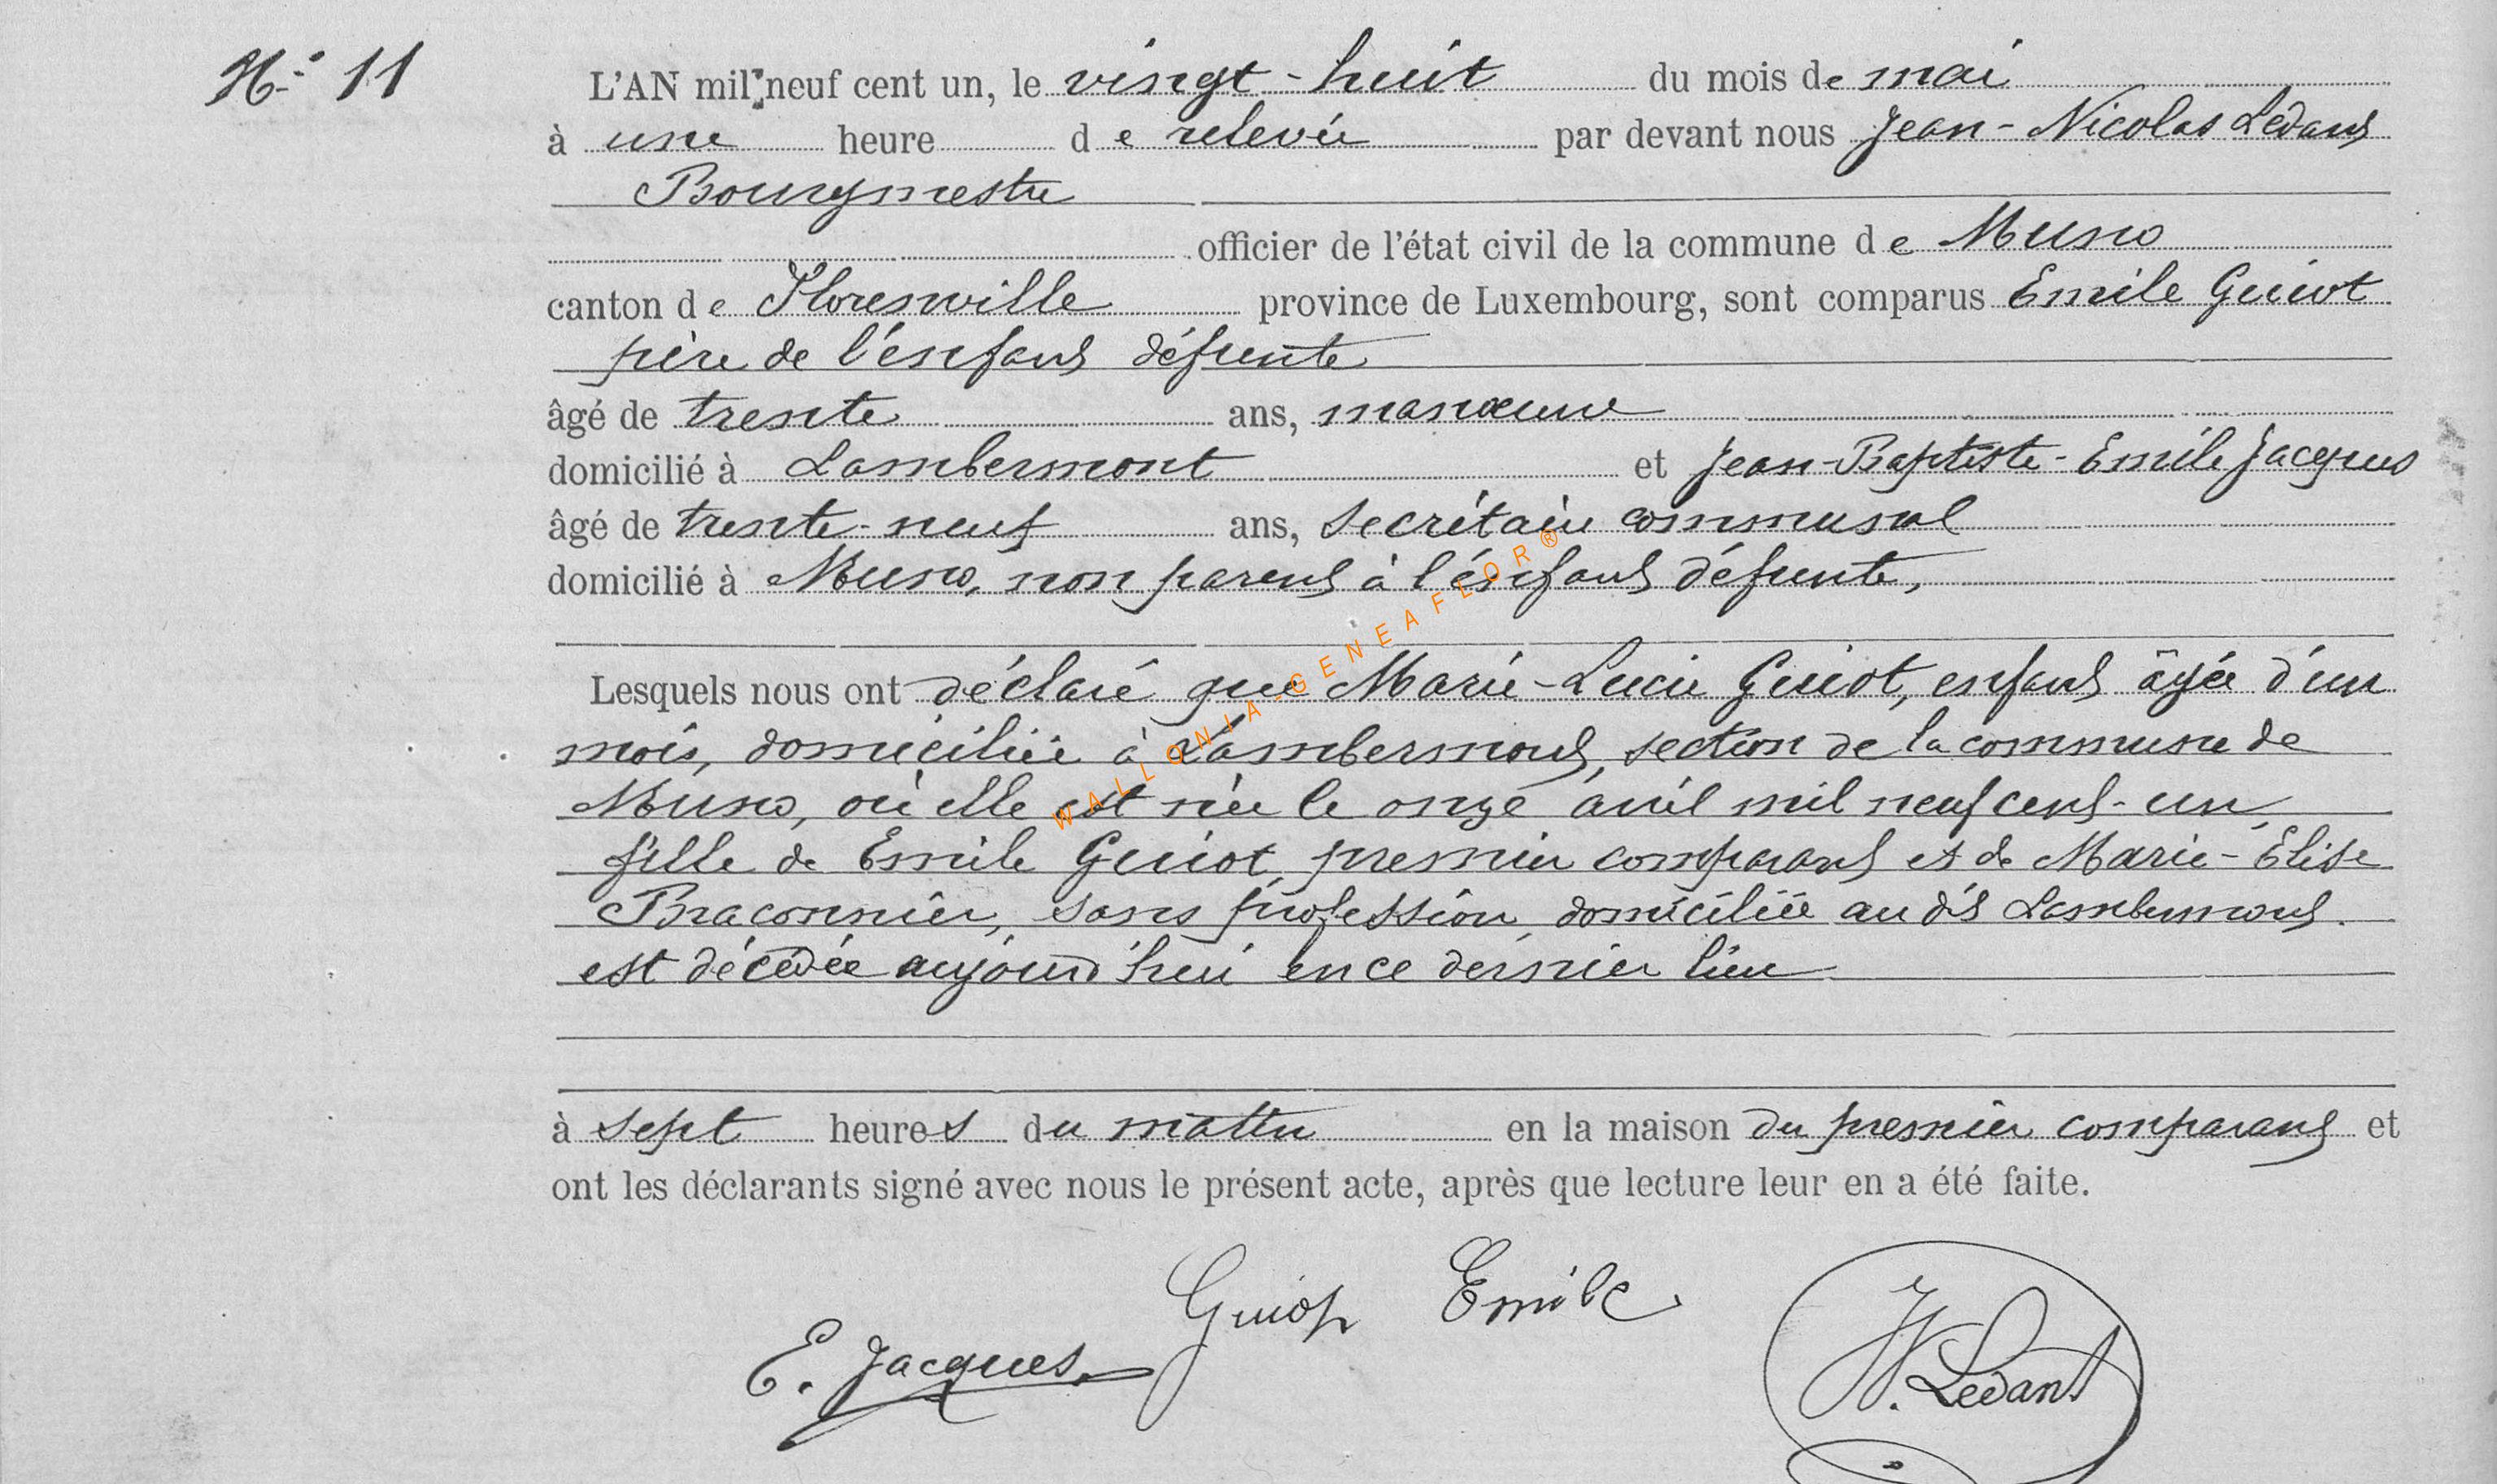 N° 11
L'AN mil neuf cent un, le vingt-huit du mois de mai
à une heure de relevée par devant nous Jean-Nicolas Ledant
Bourgmestre
officier de l'état civil de la commune de Muno
canton de Florenville province de Luxembourg, sont comparus Emile Guiot
père de l'enfant défunte
âgé de trente ans, manœuvre
domicilié à Lambermont et Jean-Baptiste-Emile Jacques
âgé de trente-neuf ans, secrétaire communal
domicilié à Muno, non parent à l'enfant défunte,
Lesquels nous ont déclaré que Marie-Lucie Guiot, enfant âgée d'un
mois, domiciliée à Lambermont, section de la commune de
Muno, où elle est née le onze avril mil neuf cent-un,
fille de Emile Guiot, premier comparant et de Marie-Elise
Braconnier, sans profession, domiciliée au dit Lambermont.
est décédée aujourd'hui en ce dernier lieu
à sept heures du matin en la maison du premier comparant et
ont les déclarants signé avec nous le présent acte, après que lecture leur en a été faite.
Guiot Emile
E. Jacques
N. Ledant
WALLONIA-GENEAFLOR®